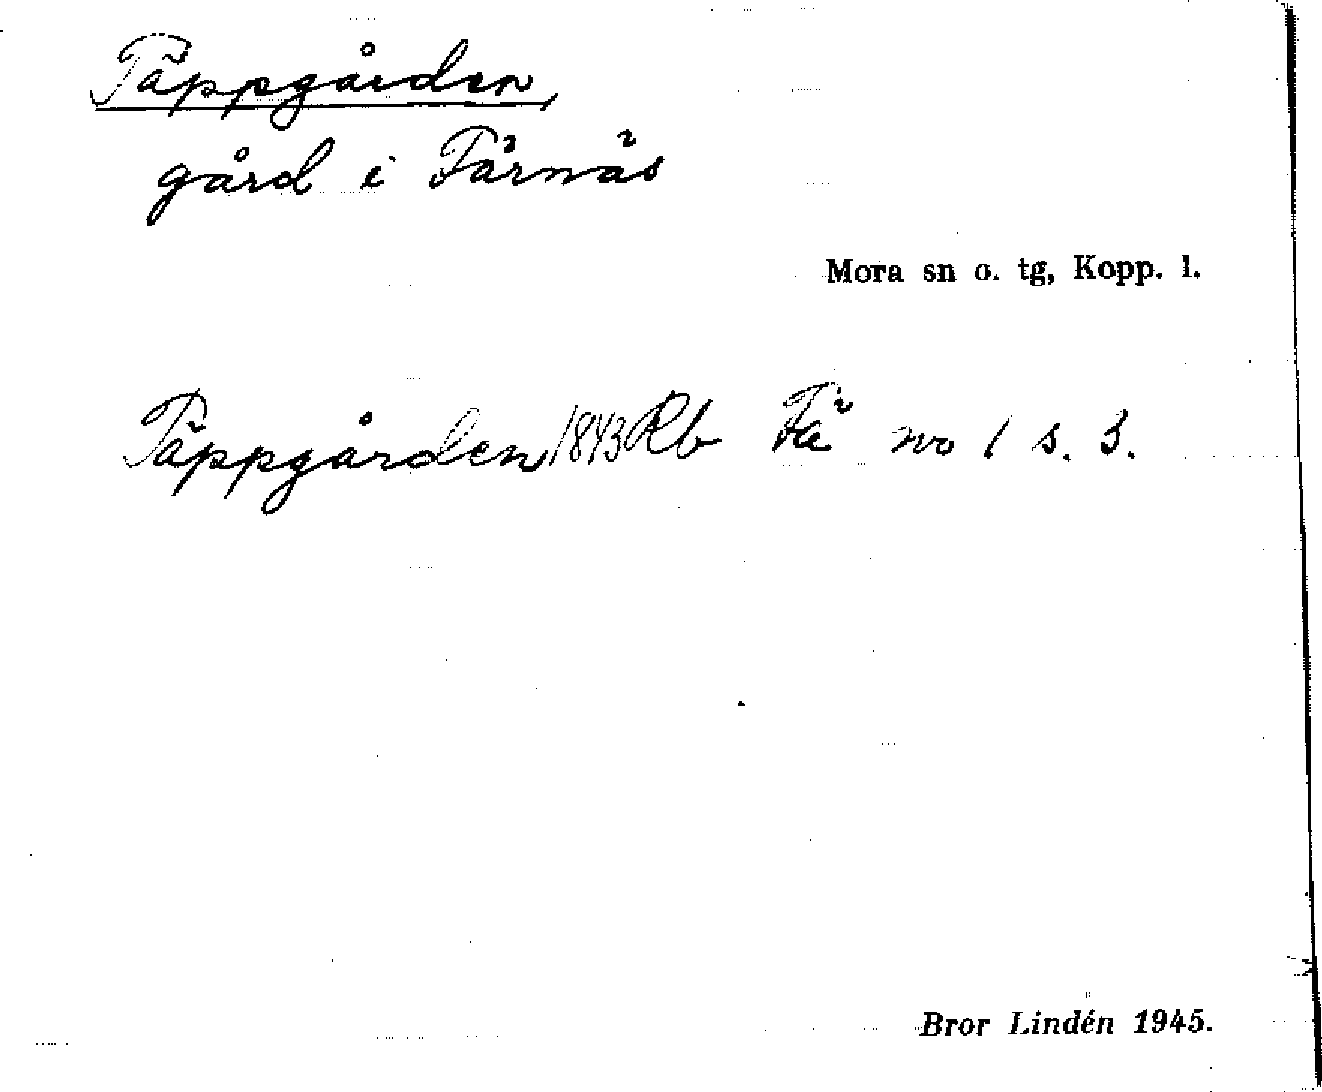 Täppgården,
gård i Färnäs
Mora sn o. tg, Kopp. l.
Täppgården 1843 Rb Fä no 1 s. 3.
Bror Lindén 1945.